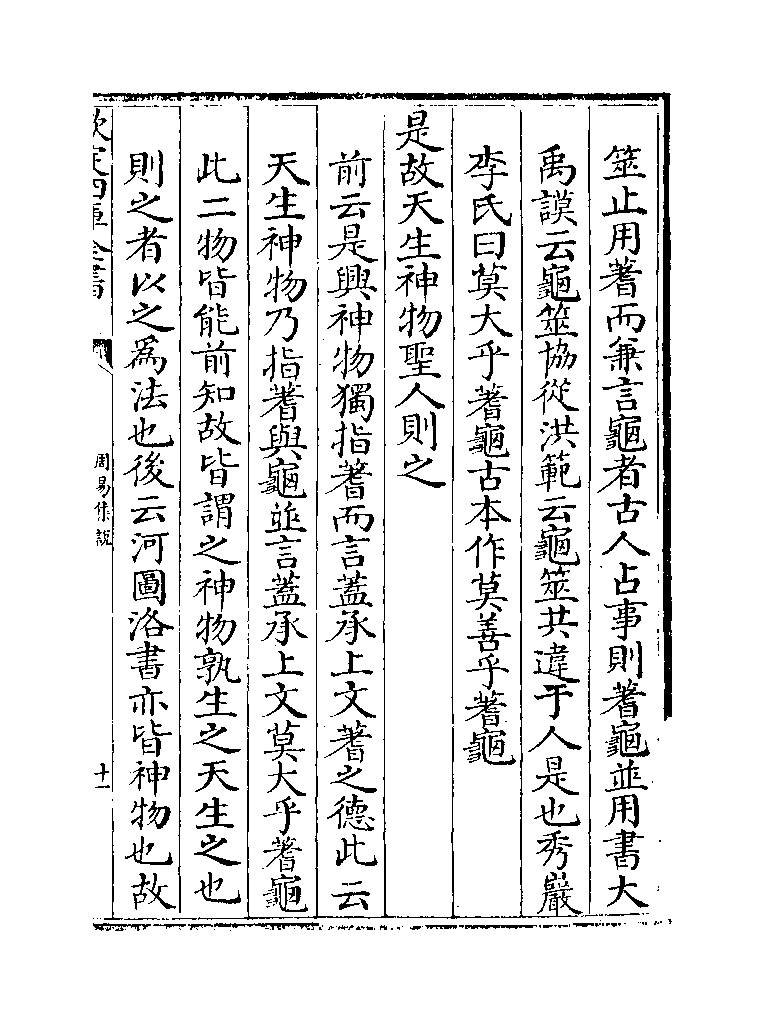 筮止用蓍而兼言龜者古人占事則蓍龜並用書大
禹謨云龜筮協從洪範云龜筮共違于人是也秀巖
李氏曰莫大乎蓍龜古本作莫善乎蓍龜
是故天生神物聖人則之
前云是興神物獨指蓍而言蓋承上文蓍之德此云
天生神物乃指蓍與龜並言蓋承上文莫大乎蓍龜
此二物皆能前知故皆謂之神物孰生之天生之也
則之者以之為法也後云河圖洛書亦皆神物也故
欽定四庫全書
周易集說
十一